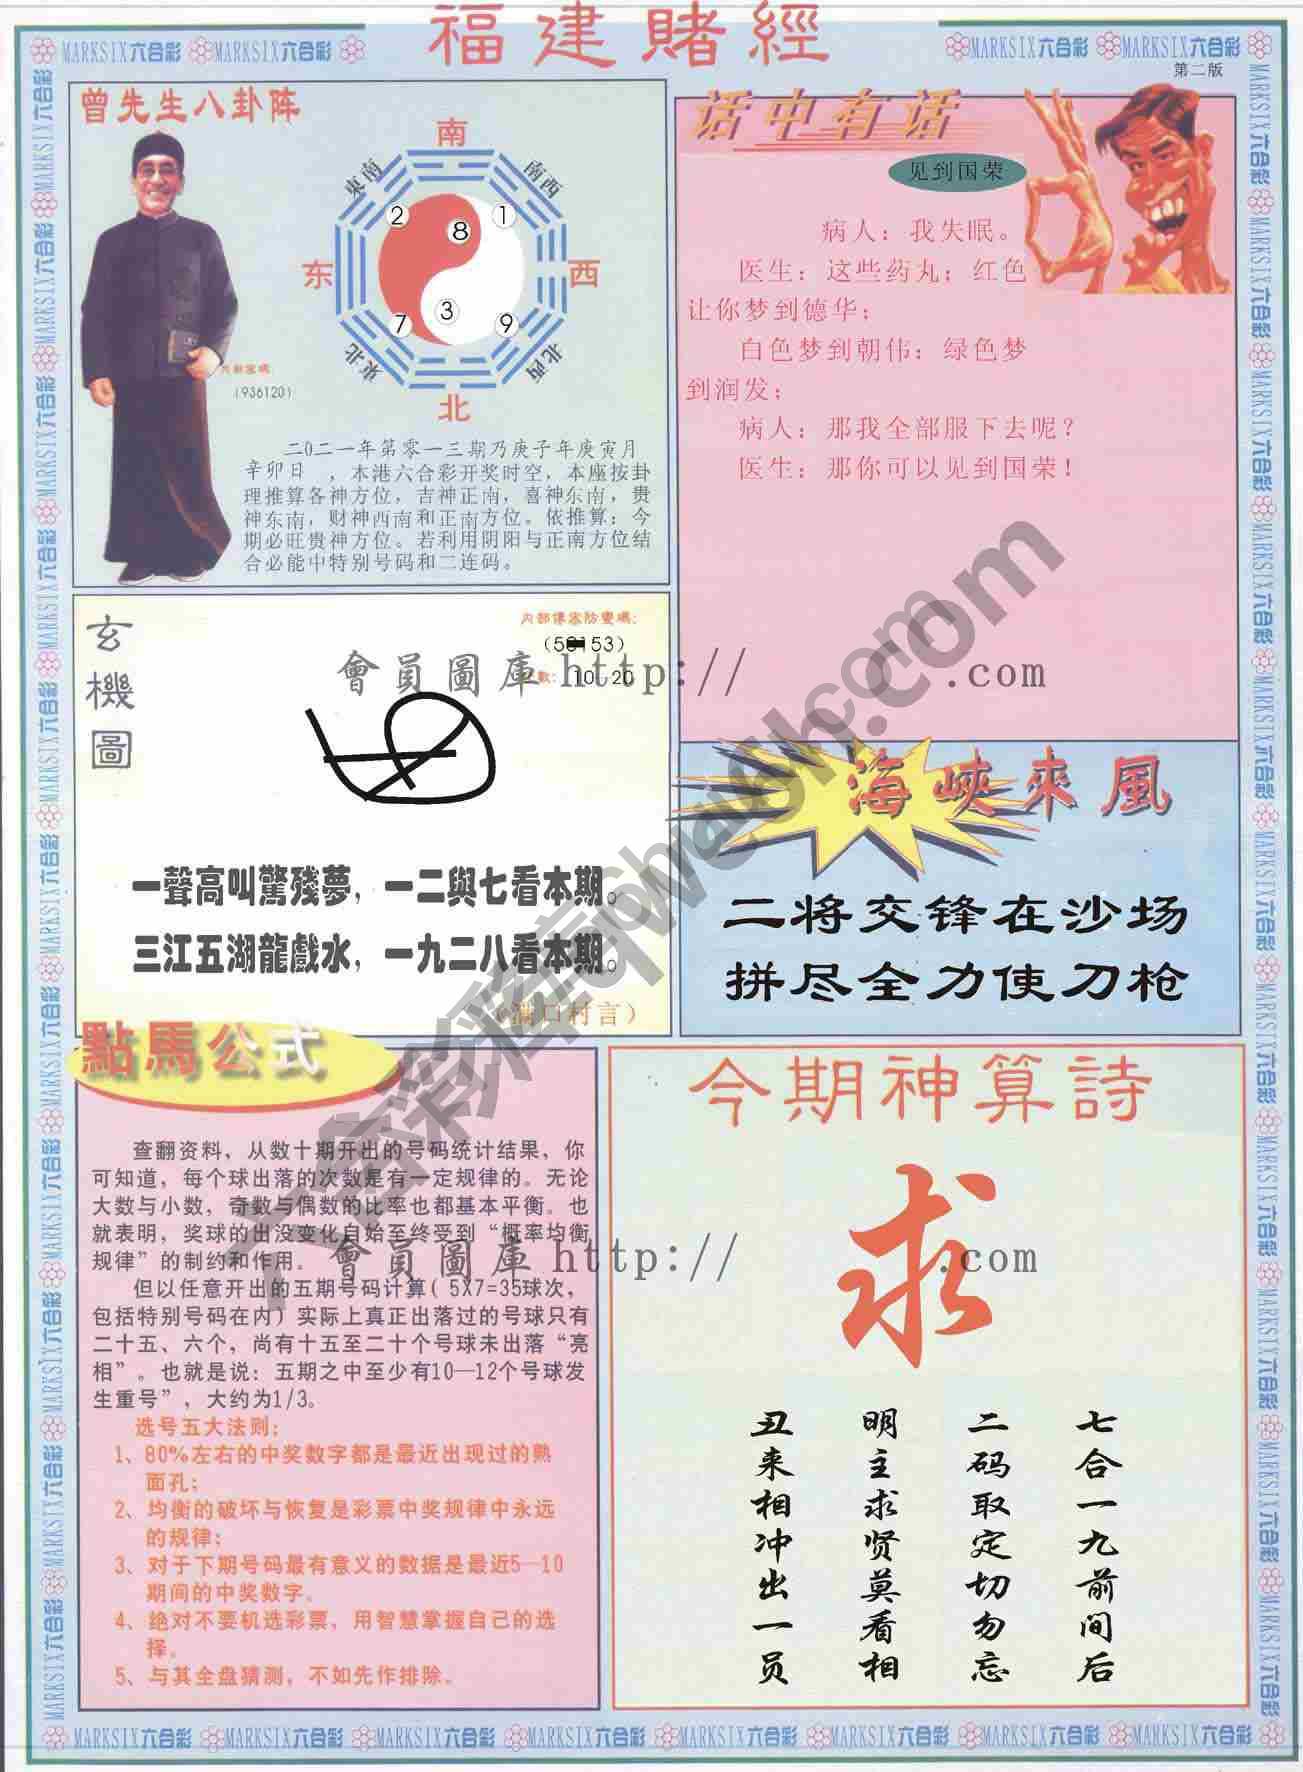 福建賭經
MARKSIX六合彩 MARKSIX六合彩
MARKSIX六合彩 MARKSIX六合彩
第二版
曾先生八卦阵
南
東南
南西
2
8
1
东
西
7
3
9
東北
北西
北
(936120)
二O二一年第零一三期乃庚子年庚寅月
辛卯日 ，本港六合彩开奖时空，本座按卦
理推算各神方位，吉神正南，喜神东南，贵
神东南，财神西南和正南方位。依推算：今
期必旺贵神方位。若利用阴阳与正南方位结
合必能中特别号码和二连码。
话中有话
见到国荣
病人：我失眠。
医生：这些药丸；红色
让你梦到德华；
白色梦到朝伟；绿色梦
到润发；
病人：那我全部服下去呢？
医生：那你可以见到国荣！
玄機圖
10. 20
會員圖庫 http:// .com
一聲高叫驚殘夢，一二與七看本期。
三江五湖龍戲水，一九二八看本期。
（满口村言）
海峽來風
二将交锋在沙场
拼尽全力使刀枪
點馬公式
查翻资料，从数十期开出的号码统计结果，你
可知道，每个球出落的次数是有一定规律的。无论
大数与小数，奇数与偶数的比率也都基本平衡。也
就表明，奖球的出没变化自始至终受到“概率均衡
规律”的制约和作用。
但以任意开出的五期号码计算( 5X7=35球次，
包括特别号码在内) 实际上真正出落过的号球只有
二十五、六个，尚有十五至二十个号球未出落“亮
相”。也就是说：五期之中至少有10—12个号球发
生重号”，大约为1/3。
选号五大法则：
1、80%左右的中奖数字都是最近出现过的熟
面孔；
2、均衡的破坏与恢复是彩票中奖规律中永远
的规律；
3、对于下期号码最有意义的数据是最近5—10
期间的中奖数字。
4、绝对不要机选彩票，用智慧掌握自己的选
择。
5、与其全盘猜测，不如先作排除。
會員圖庫 http:// .com
今期神算詩
求
七合一九前间后
二码取定切勿忘
明主求贤莫看相
丑来相冲出一员
MARKSIX六合彩 MARKSIX六合彩 MARKSIX六合彩 MARKSIX六合彩 MARKSIX六合彩 MARKSIX六合彩 MARKSIX六合彩 MARKSIX六合彩